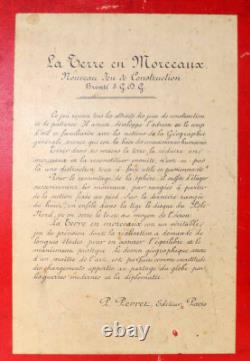 La Terre en Morceaux
Nouveau Jeu de Construction
Breveté S.G.D.G.
Ce jeu réunit tous les attraits des jeux de construction
et de patience. Il amuse, développe l'adresse et le coup
d'œil et familiarise avec les notions de la Géographie
générale, science qui est la base des connaissances humaines
dans ses mains la terre, la
et la reconstituer ensuite, n'est-ce pas là
une distraction tout à fait utile et passionnante?
Pour le remontage de la sphère, il suffit d'étager
successivement les morceaux, par rangées à partir
de la section fixée au pied. Sur la dernière rangée
du haut, on enfile dans la tige le disque du Pôle
Nord, et on serre le tout au moyen de l'écrou.
La Terre en morceaux est un véritable
jeu de précision dont la réalisation a demandé de
longues études pour en assurer l'équilibre et en
maintenir pratique. Le dessin géographique
d'un réel intérêt artistique, est parfois comme constitué
des changements apportés au partage du globe par
les guerres modernes et la diplomatie.
P. Perret, Editeur, Paris